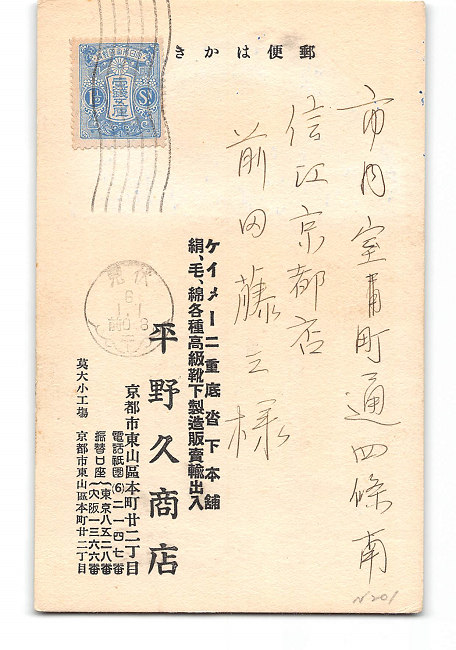 郵便はかき
市内室町通四條南
信江京都店
前田藤三様
ケイメー二重底沓下本舗
絹、毛、綿各種高級靴下製造販賣輸出入
平野久商店
京都市東山區本町廿二丁目
電話祇園(6)二一四七番
振替口座 東京八五二八番
大阪一三六六番
莫大小工場 京都市東山區本町廿二丁目
1½ Sn
伏見
6
1.1
前0-8
N201